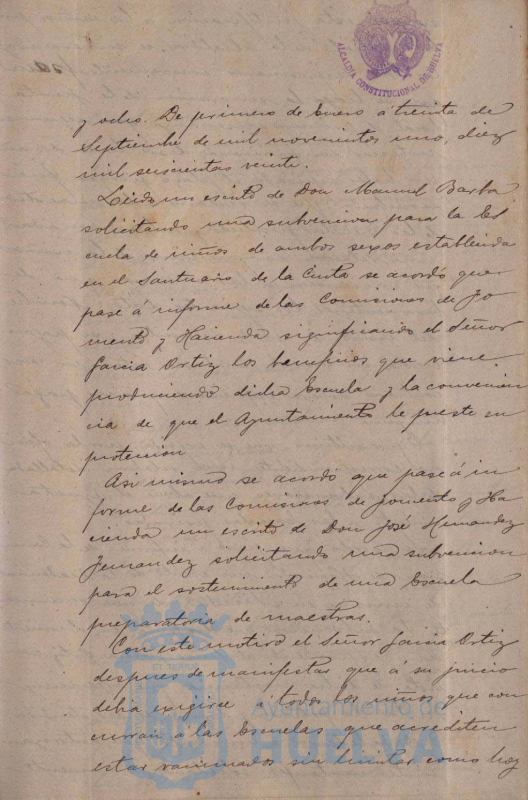 ALCALDIA CONSTITUCIONAL DE HUELVA
y ocho. De primero de Enero a treinta de
Septiembre de mil novecientos uno, diez
mil seiscientas veinte.
Leido un escrito de Don Manuel Barba
solicitando una subvencion para la Es
cuela de niños de ambos sexos establecida
en el Santuario de la Cinta se acordó que
pase á informe de las Comisiones de Fo
mento y Hacienda significando el Señor
Garcia Ortiz los beneficios que viene
produciendo dicha Escuela y la convenien
cia de que el Ayuntamiento le preste su
proteccion
Asi mismo se acordó que pase á in
forme de las Comisiones de Fomento y Ha
cienda un escrito de Don José Hernandez
Fernandez solicitando una subvencion
para el sostenimiento de una Escuela
preparatoria de maestras.
Con este motivo el Señor Garcia Ortiz
despues de manifestar que á su juicio
debia exigirse á todos los niños que con
curran á las Escuelas que acrediten
estar vacunados sin limitar como hoy
Ayuntamiento de
HUELVA